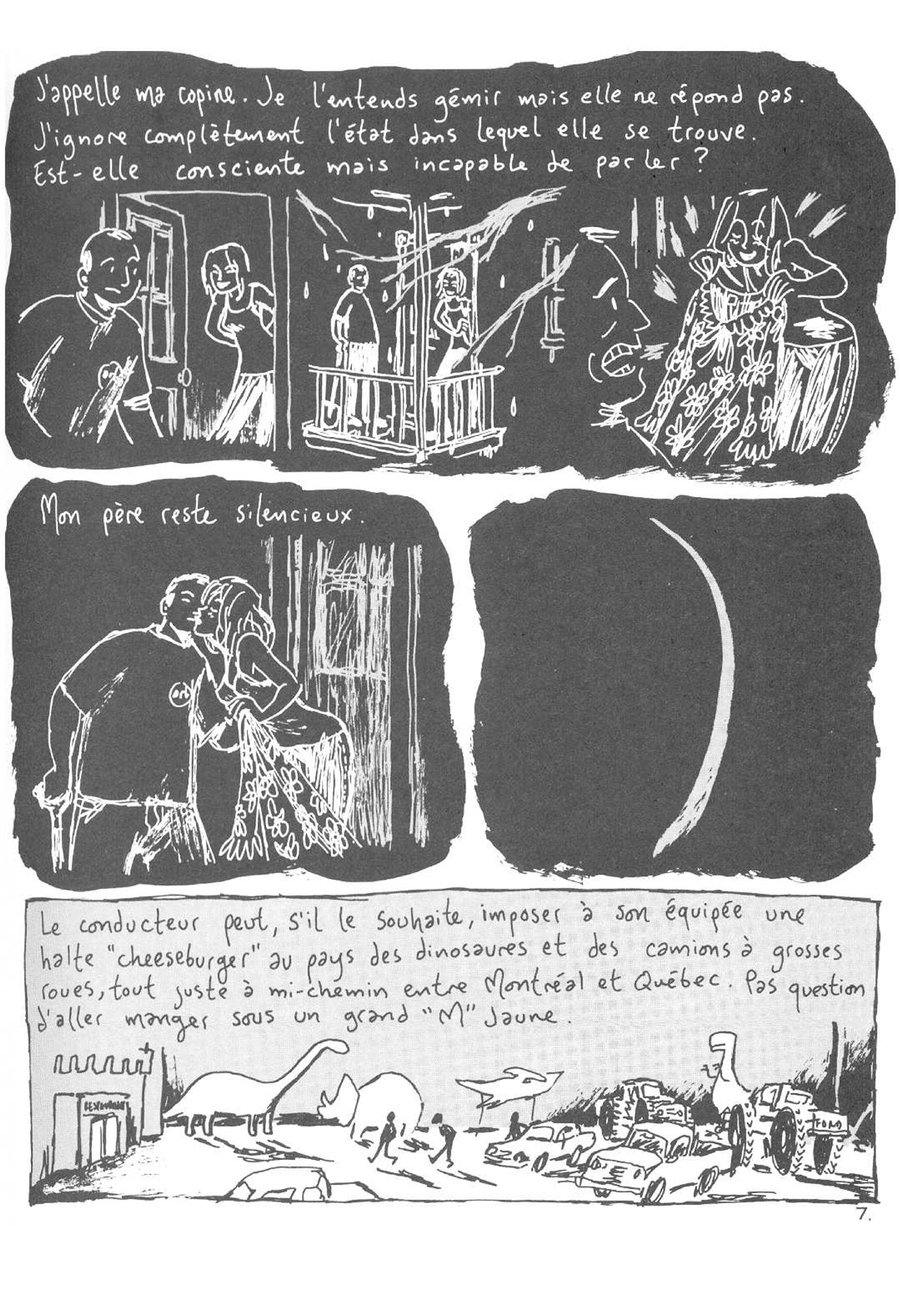 J'appelle ma copine. Je l'entends gémir mais elle ne répond pas.
J'ignore complètement l'état dans lequel elle se trouve.
Est-elle consciente mais incapable de parler ?
Mon père reste silencieux.
Le conducteur peut, s'il le souhaite, imposer à son équipée une
halte "cheeseburger" au pays des dinosaures et des camions à grosses
roues, tout juste à mi-chemin entre Montréal et Québec. Pas question
d'aller manger sous un grand "M" jaune.
RESTAURANT
FORD
7.